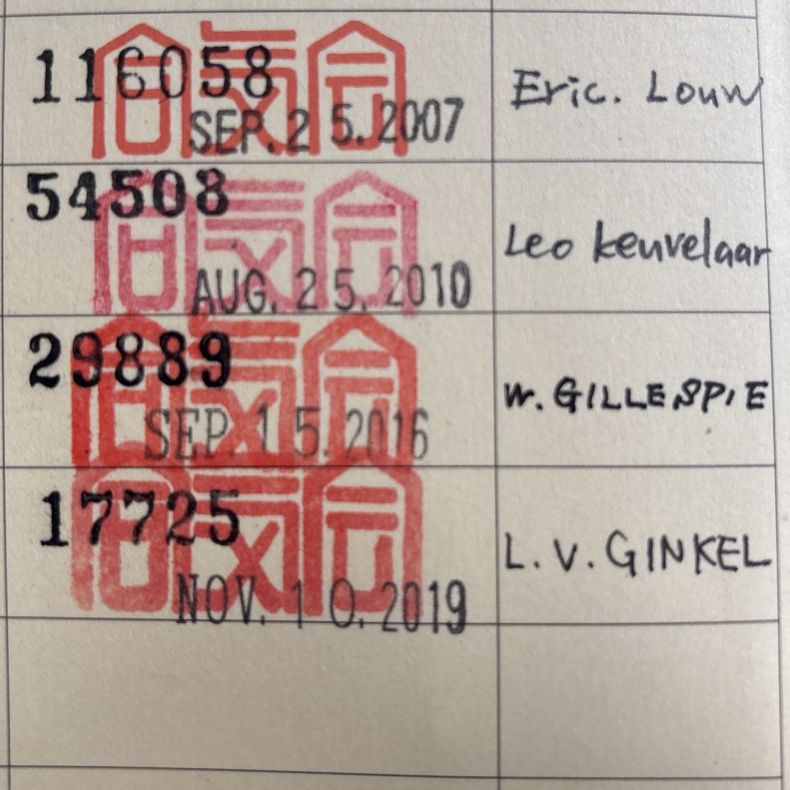 116058
合気会
SEP. 2 5. 2007
Eric. Louw
54508
合気会
AUG. 2 5. 2010
Leo keuvelaar
29889
合気会
SEP. 1 5. 2016
W. GILLESPIE
17725
合気会
NOV. 1 0. 2019
L. V. GINKEL